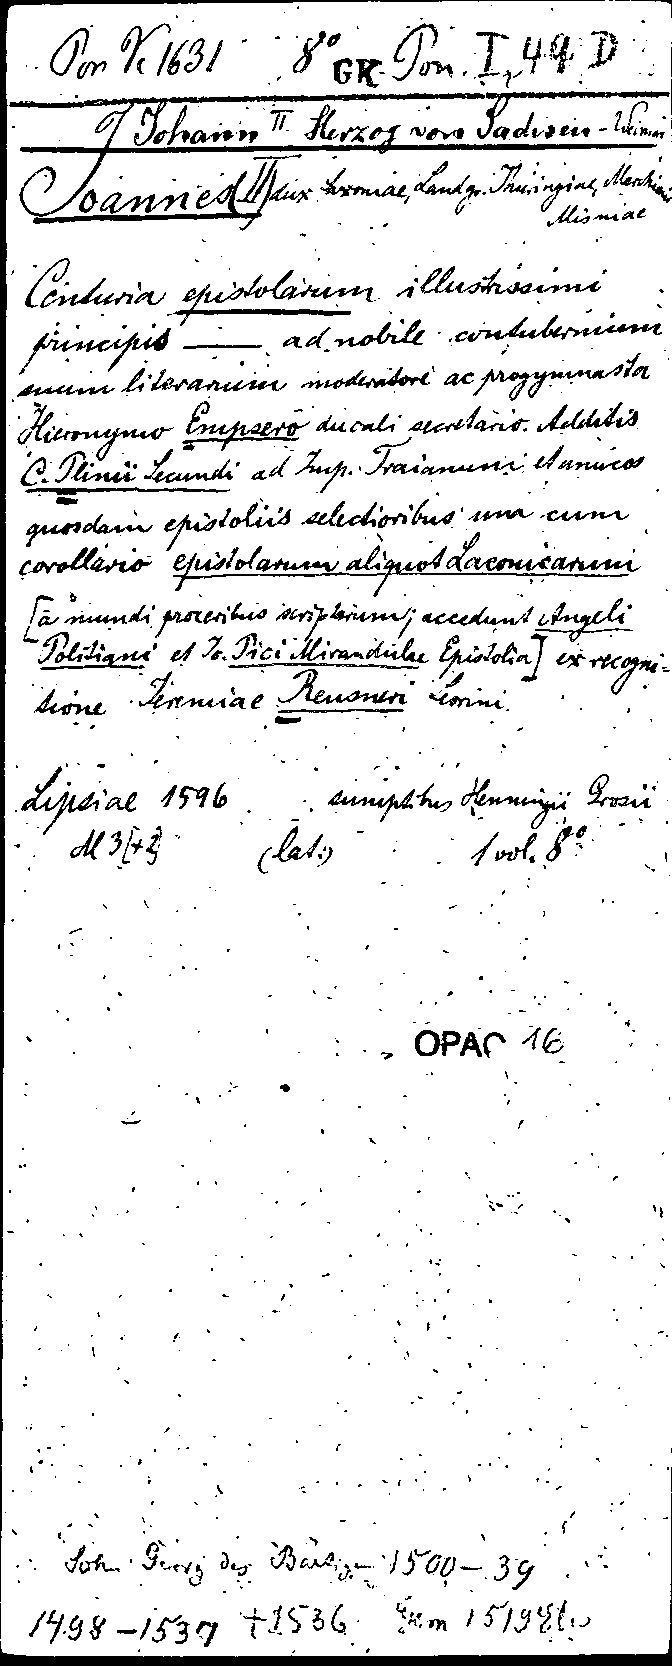 Pon Vc 1631 8° GK Pon. I, 49 D
Johann II Herzog von Sachsen-Weimar
Joannes (II) dux Saxoniae, Landgr. Thuringiae, Marchionis
Misniae
Centuria epistolarum illustrissimi
principis —— ad nobile contubernium
suum literarium moderatore ac progymnasta
Hieronymo Empsero ducali secretario. Additis
C. Plinii Secundi ad Imp. Traianum et amicos
quosdam epistoliis selectioribus una cum
corollario epistolarum aliquot Laconicarum
[a mundi proceribus scriptarum; accedunt Angeli
Politiani et Jo. Pici Mirandulae Epistolia] ex recogni-
tione Jeremiae Reusneri Leorini.
Lipsiae 1596 sumptibus Henningii Grosii
M 3 [+2] (lat.) 1 vol. 8°
OPAC 16
Sohn Georg des Bärtigen 1500-39
1498-1537 +1536 1519